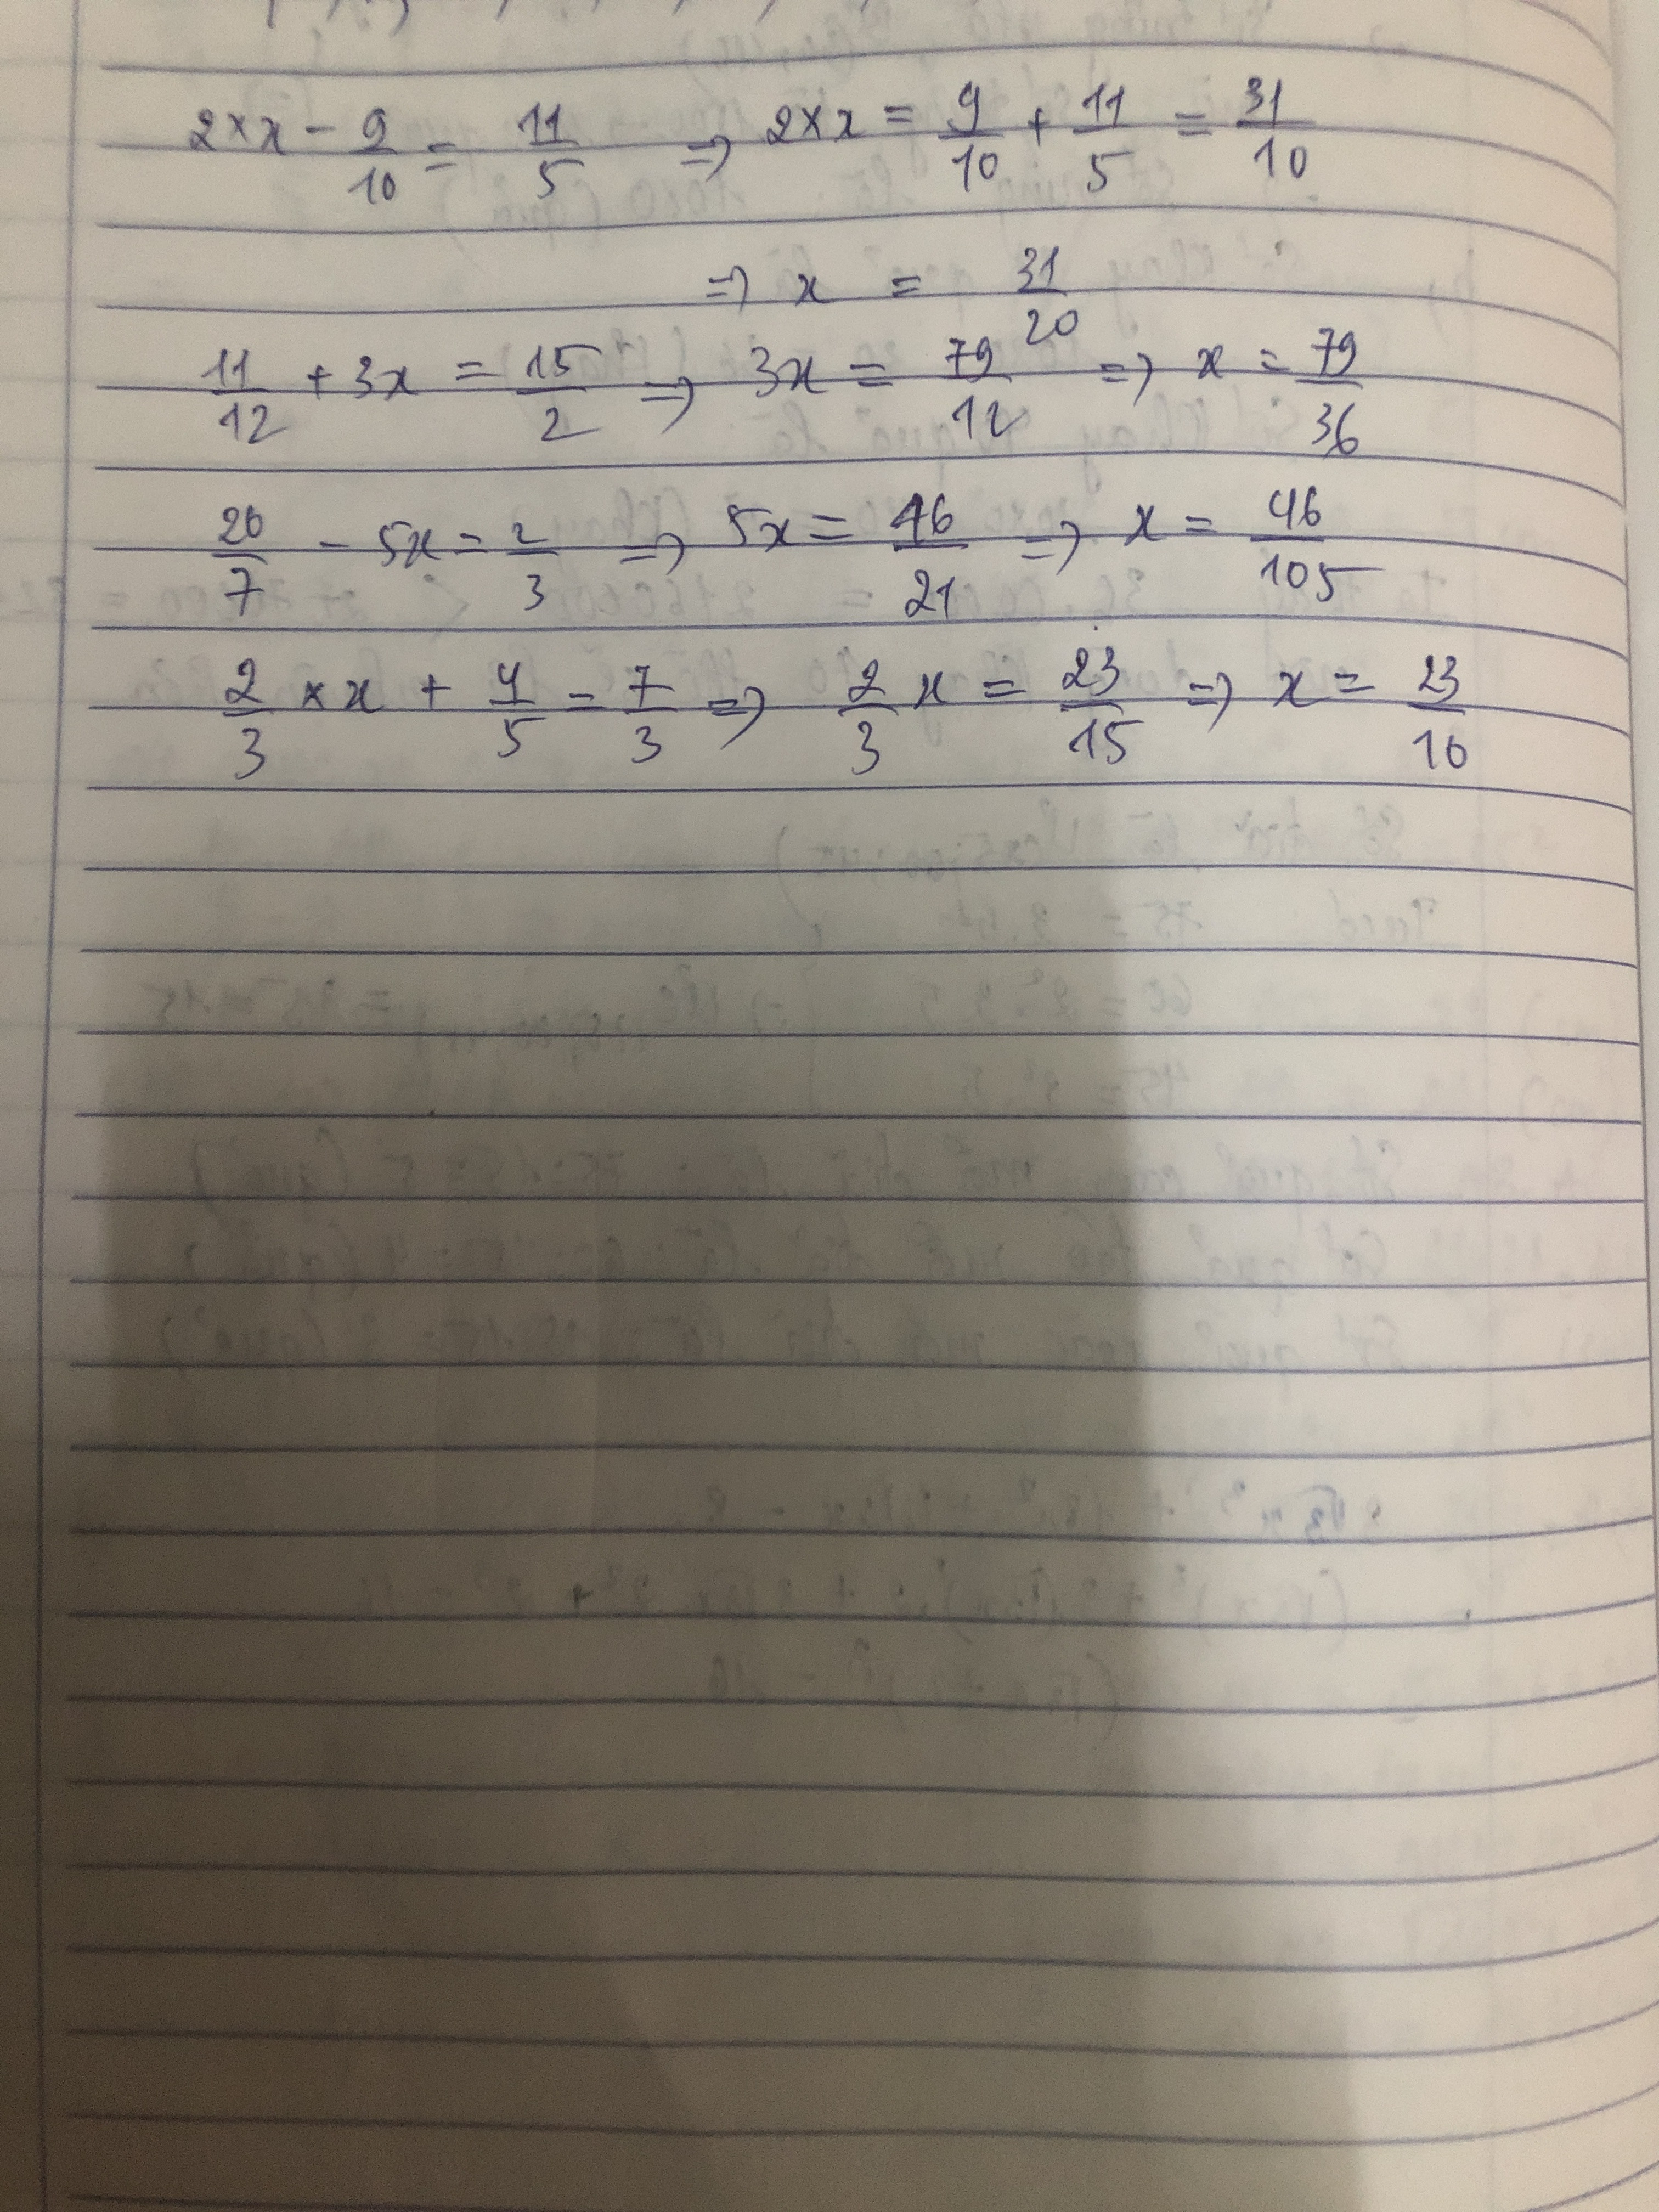 2 × x - 9/10 = 11/5 => 2 × x = 9/10 + 11/5 = 31/10
=> x = 31/20
11/12 + 3x = 15/2 => 3x = 79/12 => x = 79/36
20/7 - 5x = 2/3 => 5x = 46/21 => x = 46/105
2/3 × x + 4/5 = 7/3 => 2/3 x = 23/15 => x = 23/10